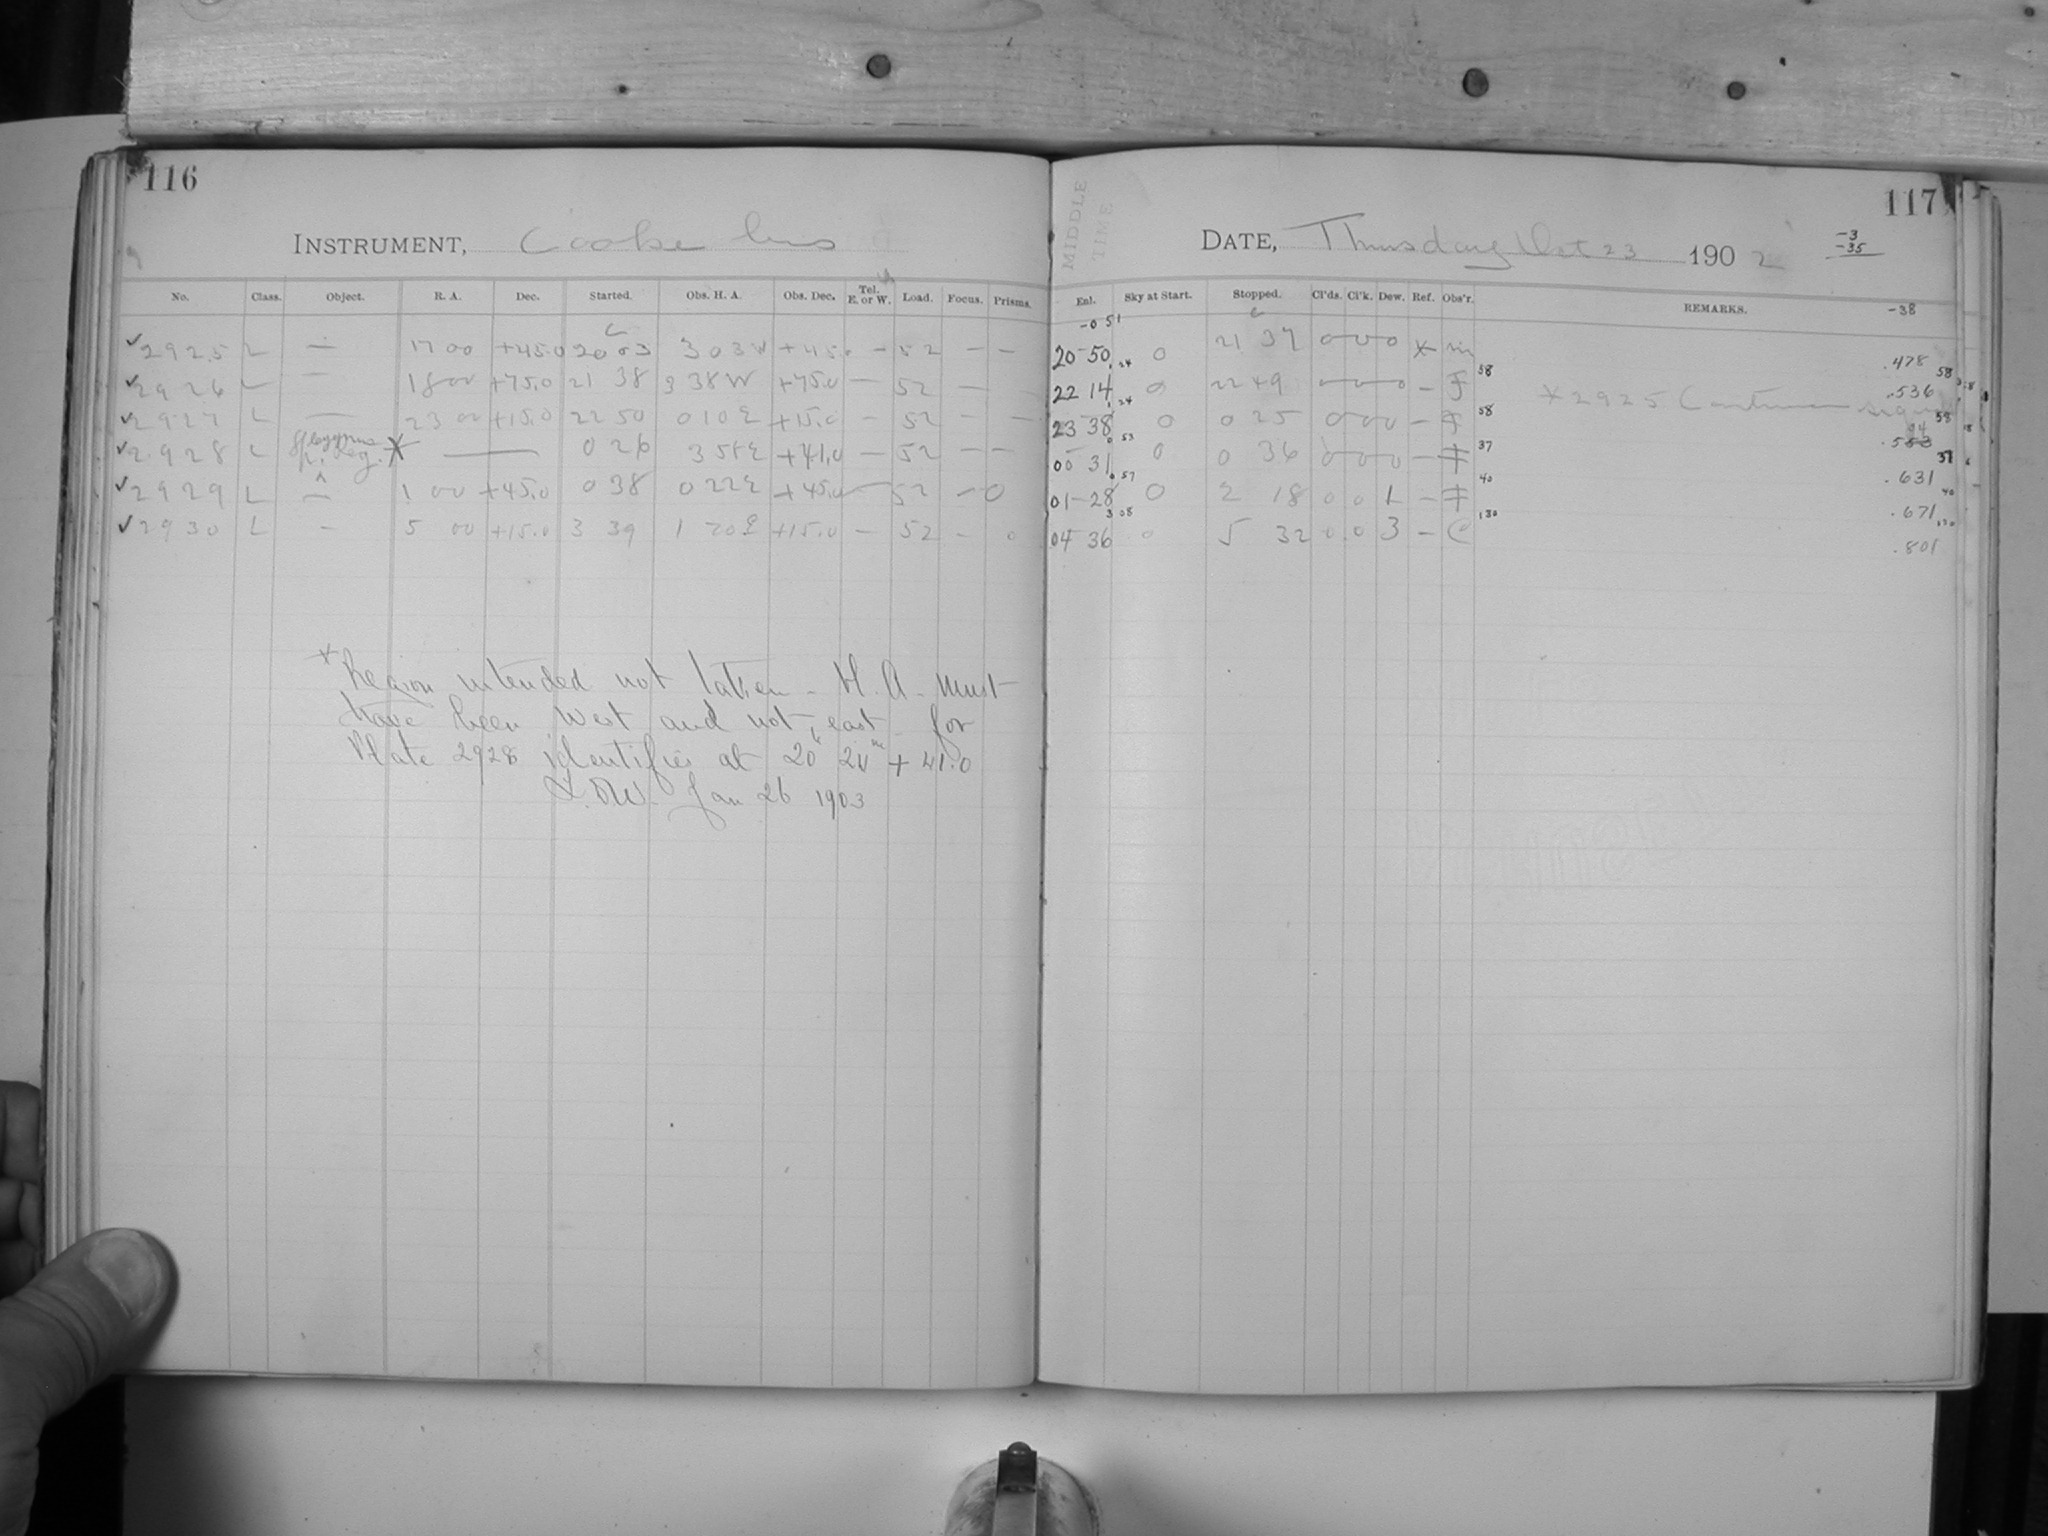 116
INSTRUMENT, Cooke lens
No. Class. Object. R. A. Dec. Started. Obs. H. A. Obs. Dec. Tel. E. or W. Load. Focus. Prisms.
2925 L — 17 00 +45.0 20 03 3 03 W +45.0 — 52 — —
2926 L — 18 00 +75.0 21 38 3 38 W +75.0 — 52 — —
2927 L — 23 00 +15.0 22 50 0 10 E +15.0 — 52 — —
2928 L * — 0 26 3 58 E +41.0 — 52 — —
2929 L — 1 00 +45.0 0 38 0 22 E +45.0 — 52 — 0
2930 L — 5 00 +15.0 3 39 1 20 E +15.0 — 52 — 0
* Region intended not taken - H. A. must
have been West and not east for
Plate 2928 identifies at 20h 24m + 41.0
Jan 26 1903
117
MIDDLE TIME
DATE, Thursday Oct 23 1902
-3
-35
-38
Enl. Sky at Start. Stopped. Cl'ds. Cl'k. Dew. Ref. Obs'r. REMARKS.
-0 51
20-50 0 21 37 0 0 0 * .478
22 14 0 22 49 0 0 0 — F 58 .536
* 2925 Continuous
23-38 0 0 25 0 0 0 — F 58
00 31 0 0 36 0 0 0 — F 37 .631
01-28 0 2 18 0 0 1 — F 40 .671
04 36 0 5 32 0 0 3 — C 130 .801